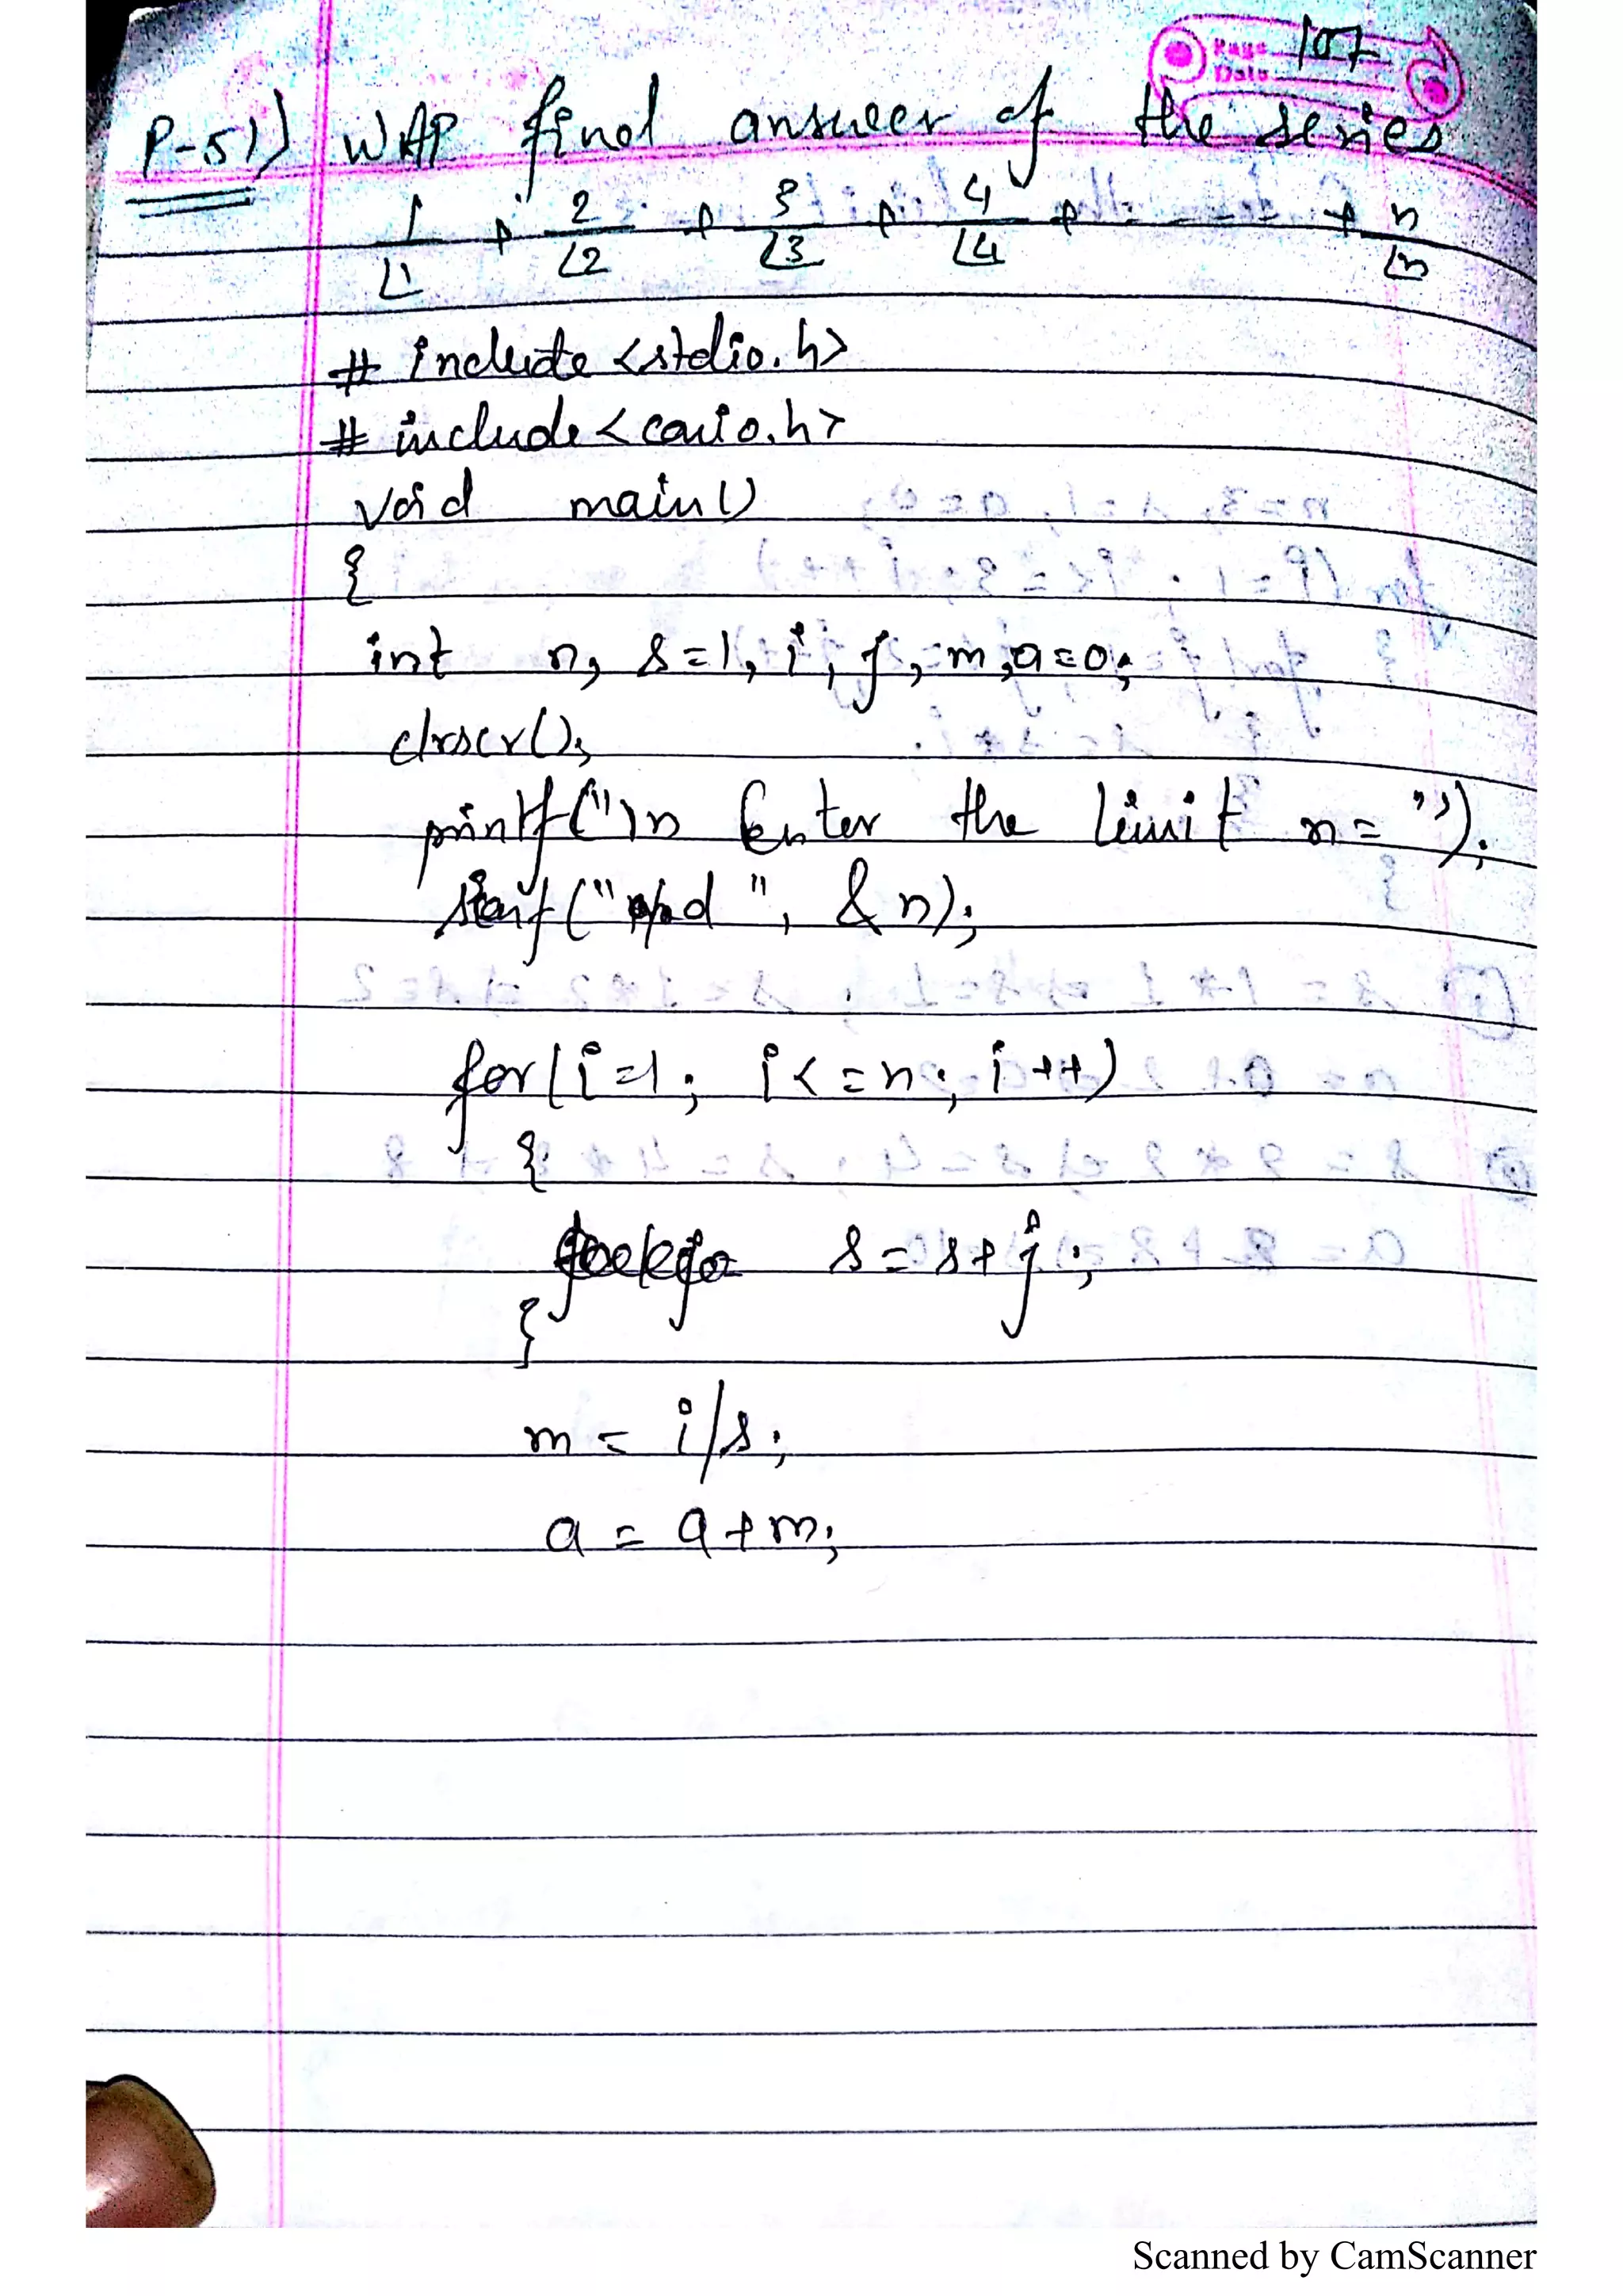 Page 107
Date
P-51) WAP find answer of the series
1/⌊1 + 2/⌊2 + 3/⌊3 + 4/⌊4 + - - - - + n/⌊n
# include <stdio.h>
# include <conio.h>
void main()
{
int n, s=1, i, j, m, a=0;
clrscr();
printf("\n Enter the limit n= ");
scanf("%d", &n);
for(i=1; i<=n; i++)
{
s=s*j;
}
m = i/s;
a = a+m;
Scanned by CamScanner